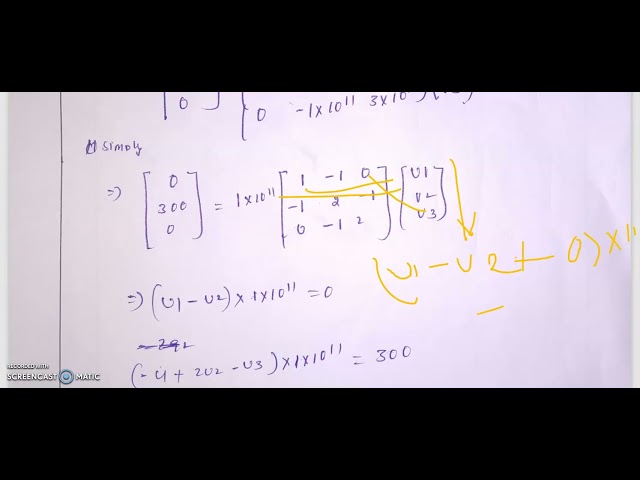 0
0 -1×10¹¹ 3×10
Simply
⇒ [0 300 0] = 1×10¹¹ [1 -1 0 -1 2 -1 0 -1 2] [U1 U2 U3]
(U1 - U2 + 0) × 11
⇒ (U1 - U2) × 1×10¹¹ = 0
(-U1 + 2U2 - U3) × 1×10¹¹ = 300
RECORDED WITH
SCREENCAST MATIC